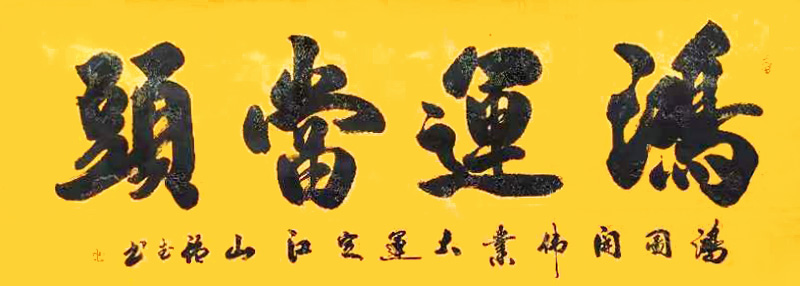 鴻運當頭
鴻圖開偉業大運定江山